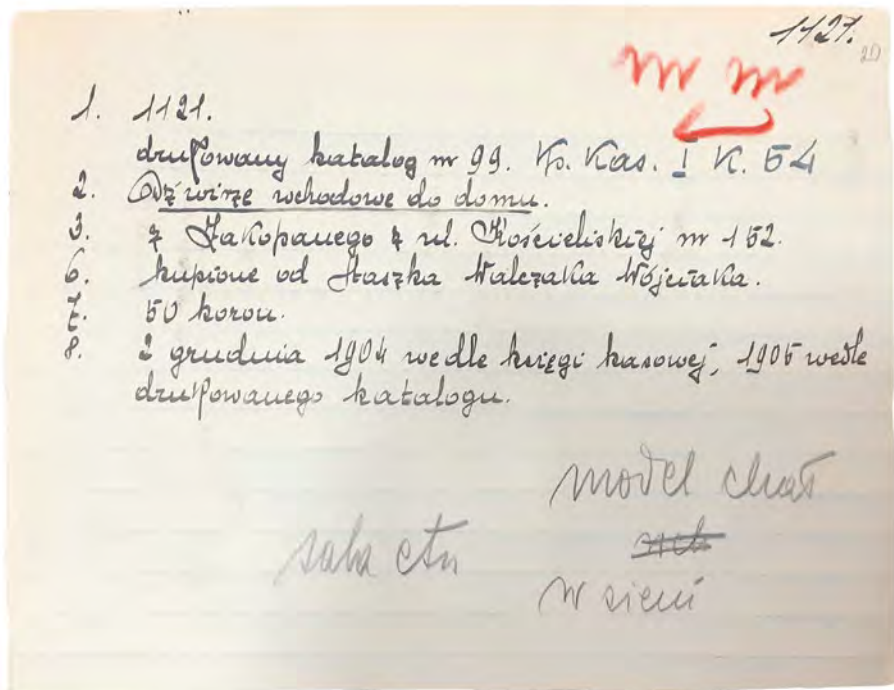 1121.
20
1. 1121.
drukowany katalog nr 99. Ks. Kas. I K. 54
2. Odźwirze wchodowe do domu.
3. z Zakopanego z ul. Kościeliskiej nr 152.
6. kupione od Staszka Walczaka Wójciaka.
7. 50 koron.
8. 2 grudnia 1904 wedle księgi kasowej, 1905 wedle
drukowanego katalogu.
model chał
sala etn
w sieni